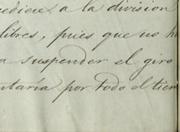 edieu, a la division
libres, pues que no h
a suspender el giro
ntaría por todo el tiem